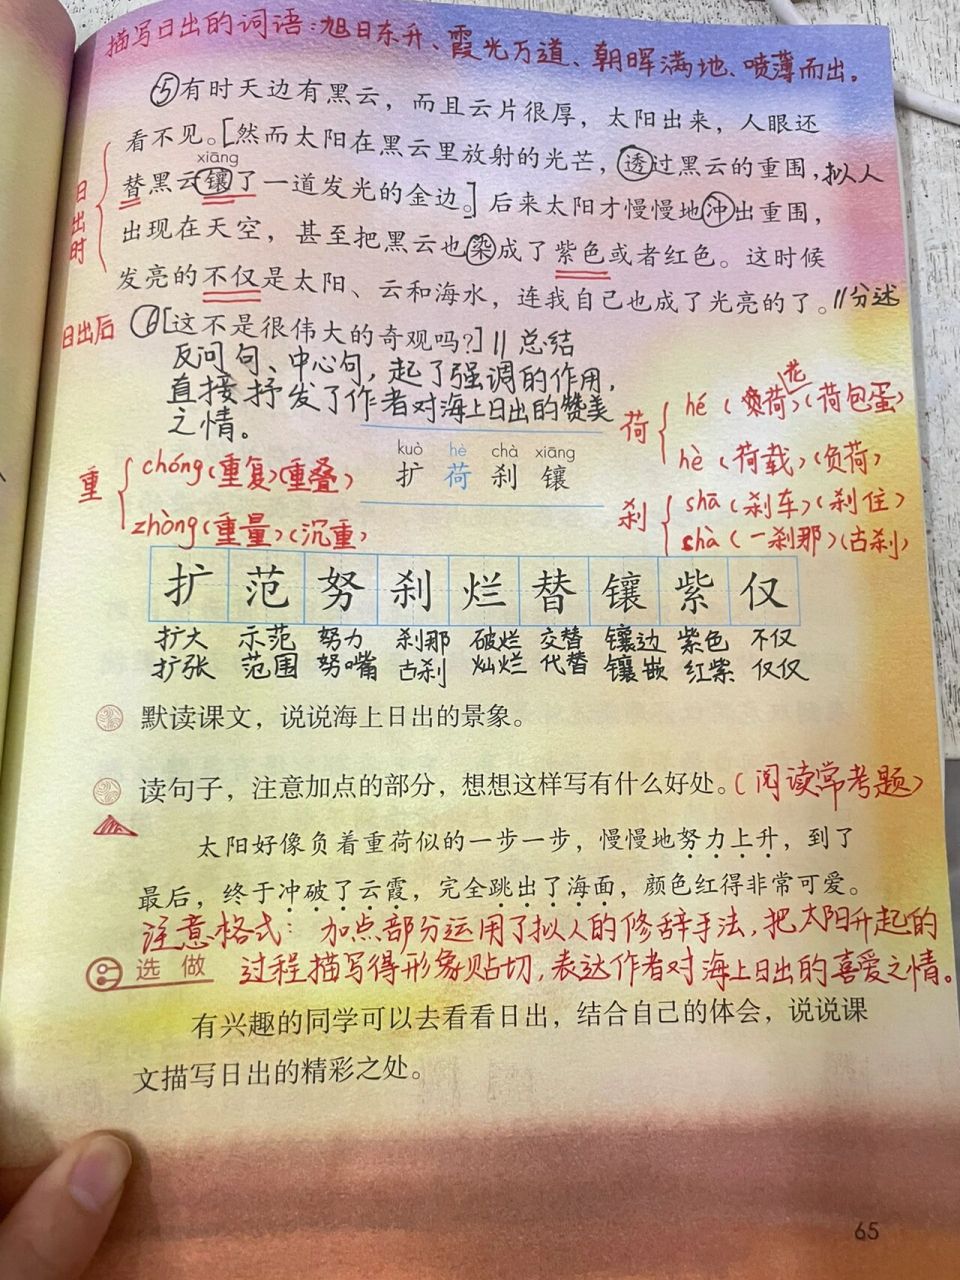 描写日出的词语：旭日东升、霞光万道、朝晖满地、喷薄而出。
⑤有时天边有黑云，而且云片很厚，太阳出来，人眼还
看不见。[然而太阳在黑云里放射的光芒，透过黑云的重围，拟人
xiāng
替黑云镶了一道发光的金边。]后来太阳才慢慢地冲出重围，
日出时
出现在天空，甚至把黑云也染成了紫色或者红色。这时候
发亮的不仅是太阳、云和海水，连我自己也成了光亮的了。//分述
日出后 ⑥[这不是很伟大的奇观吗？]//总结
反问句、中心句，起了强调的作用，
直接抒发了作者对海上日出的赞美
之情。
荷 hé（负荷）花（荷包蛋）
hè（荷载）（负荷）
kuò hè chà xiāng
扩 荷 刹 镶
重 chóng（重复）（重叠）
zhòng（重量）（沉重）
刹 shā（刹车）（刹住）
chà（一刹那）（古刹）
扩 范 努 刹 烂 替 镶 紫 仅
扩大 示范 努力 刹那 破烂 交替 镶边 紫色 不仅
扩张 范围 努嘴 古刹 灿烂 代替 镶嵌 红紫 仅仅
默读课文，说说海上日出的景象。
读句子，注意加点的部分，想想这样写有什么好处。（阅读常考题）
太阳好像负着重荷似的一步一步，慢慢地努力上升，到了
最后，终于冲破了云霞，完全跳出了海面，颜色红得非常可爱。
注意格式：加点部分运用了拟人的修辞手法，把太阳升起的
选做 过程描写得形象贴切，表达作者对海上日出的喜爱之情。
有兴趣的同学可以去看看日出，结合自己的体会，说说课
文描写日出的精彩之处。
65